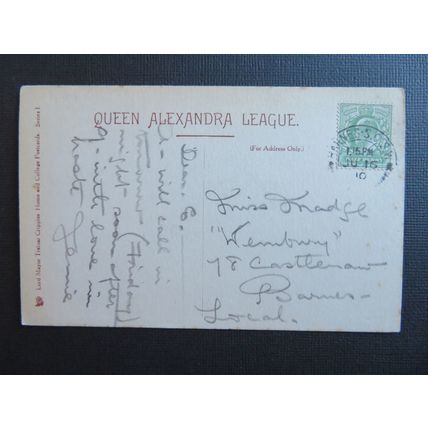 QUEEN ALEXANDRA LEAGUE.
(For Address Only.)
Lord Mayor Treloar Cripples' Home and College Postcards. Series I.
BARNES. S.O.
1.15 PM
JU 16
10
Dear E.
I will call in
tomorrow (Friday)
night soon after
7- with love in
haste Jennie
Miss Madge
"Wembury"
76 Castlenau
Barnes-
Local.